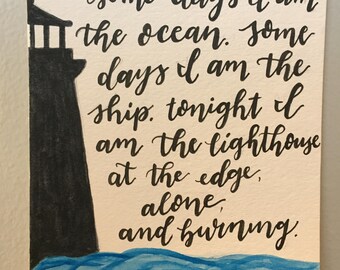 some days I am
the ocean. some
days I am the
ship. tonight I
am the lighthouse
at the edge,
alone,
and burning.